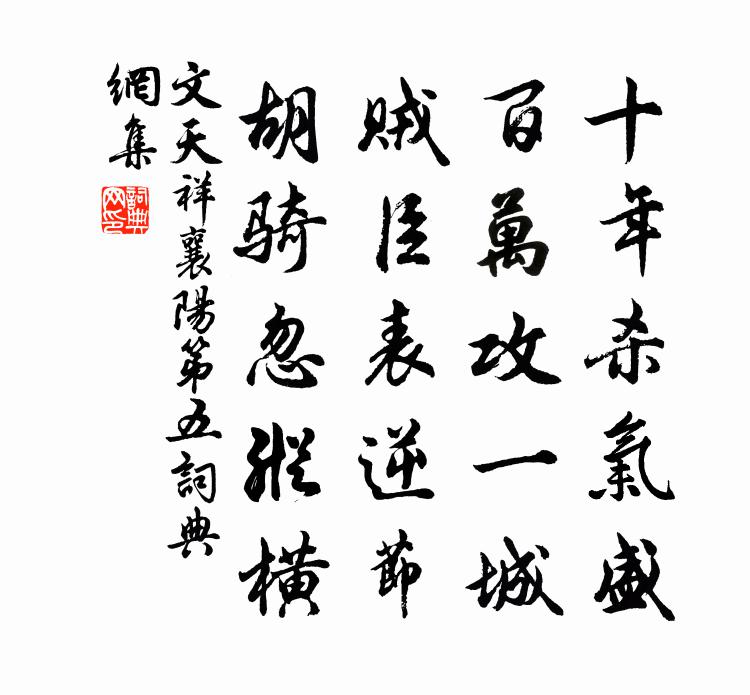 十年杀氣盛
百萬攻一城
賊臣表逆節
胡騎忽縱橫
文天祥襄陽第五詞典
網集
詞典网印